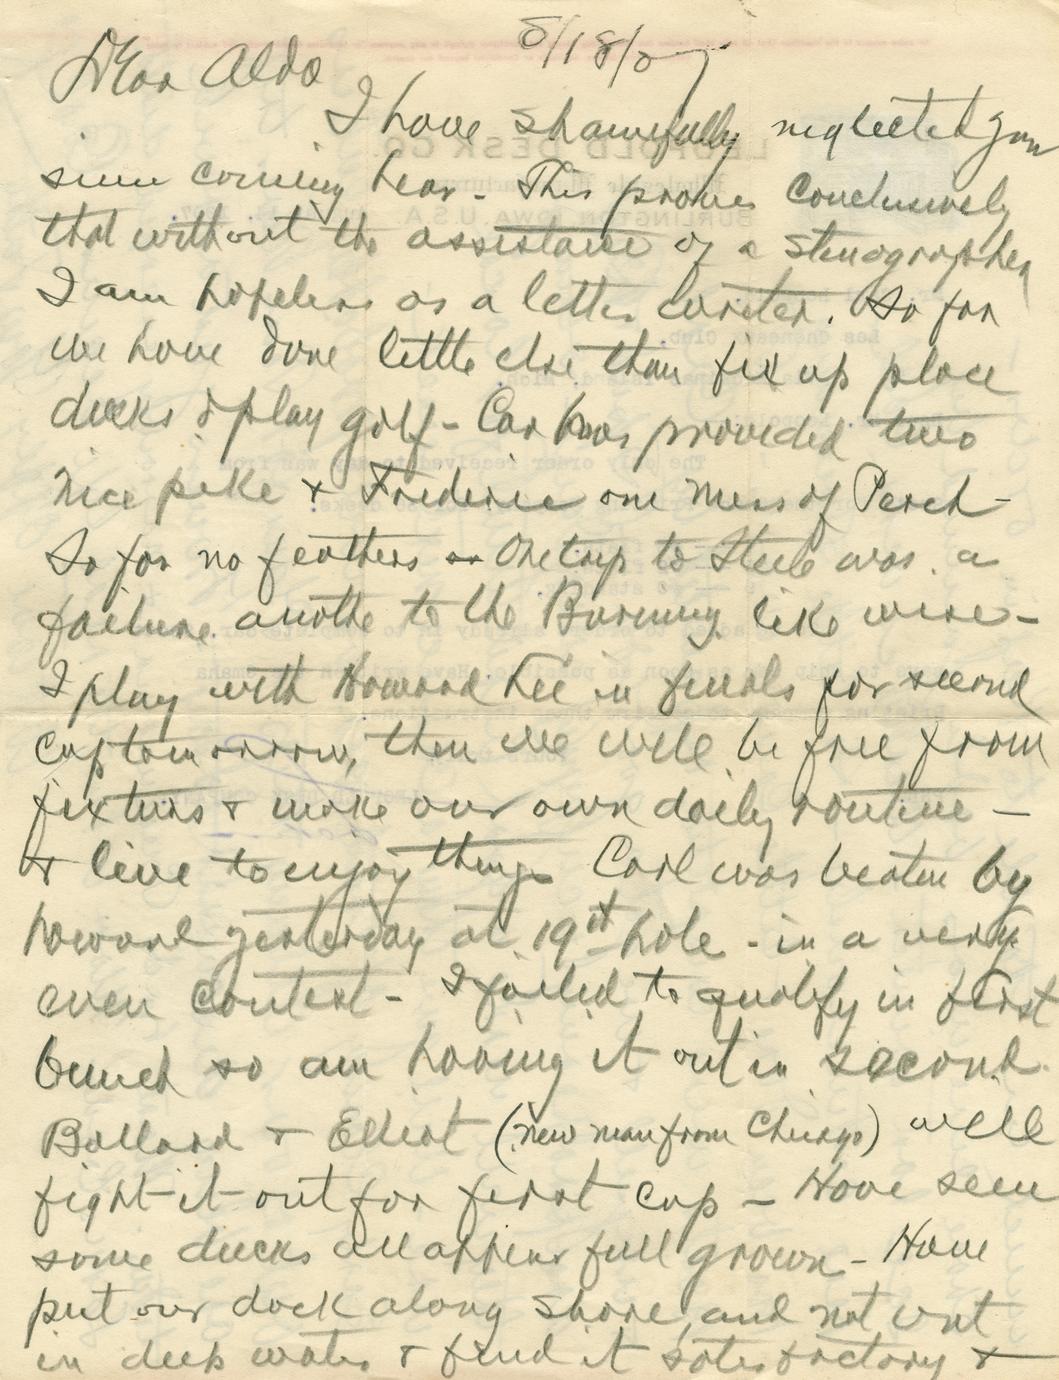 8/18/27
Dear Aldo
I have shamefully neglected you
since coming hear - This proves Conclusively
that without the assistance of a stenographer
I am hopeless as a letter writer. So far
we have done little else than fix up place
decks & play golf - Carl has provided two
nice pike & Frederic one mess of Perch -
So far no feathers - One trip to Steele was a
failure. another to the Burning likewise -
I play with Howard Lee in finals for second
Cup tomorrow, then we will be free from
fixtures & make our own daily routine -
& live to enjoy things Carl was beaten by
Howard yesterday at 19st hole - in a very
even Contest - I failed to qualify in first
bunch so am having it out in second.
Ballard & Elliot (new man from Chicago) will
fight it out for first Cup - Have seen
some ducks all appear full grown - Have
put our dock along shore, and not out
in deep water & find it satisfactory &
LEOPOLD DESK CO.
BURLINGTON, IOWA, U.S.A.
Les Cheneaux Club
The only order received